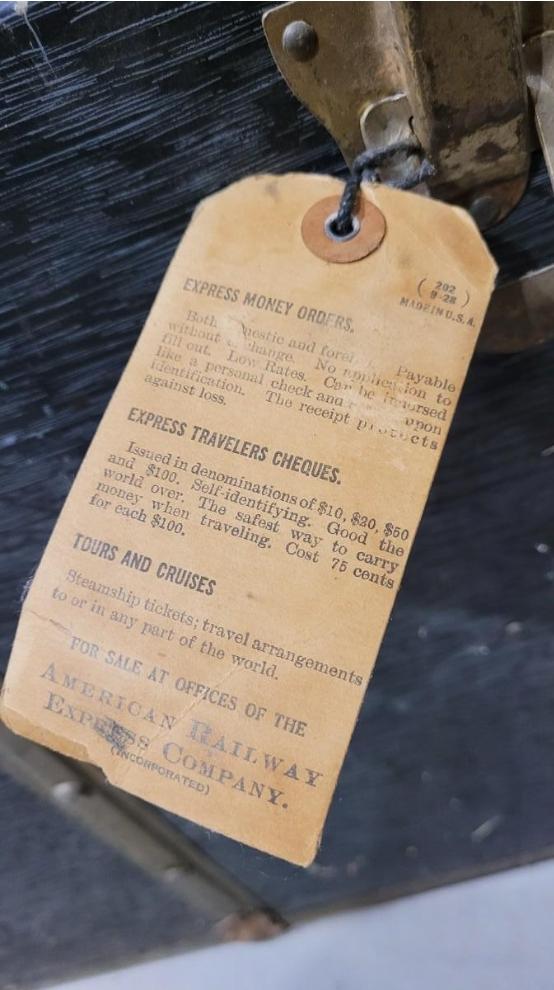 ( 202 )
9-28
MADE IN U.S.A.
EXPRESS MONEY ORDERS.
Both estic and forei Payable
without hange. No application to
fill out. Low Rates. Can be indorsed
like a personal check and upon
identification. The receipt protects
against loss.
EXPRESS TRAVELERS CHEQUES.
Issued in denominations of $10, $20, $50
and $100. Self-identifying. Good the
world over. The safest way to carry
money when traveling. Cost 75 cents
for each $100.
TOURS AND CRUISES
Steamship tickets; travel arrangements
to or in any part of the world.
FOR SALE AT OFFICES OF THE
AMERICAN RAILWAY
EXPRESS COMPANY.
(INCORPORATED)